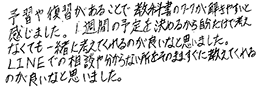 予習や復習があることで教科書のワークが解きやすいと
感じました。1週間の予定を決めるから自分だけで考え
なくても一緒に考えてくれるのが良いなと思いました。
LINEでの相談や分からない所をそのまますぐに教えてくれる
のが良いなと思いました。